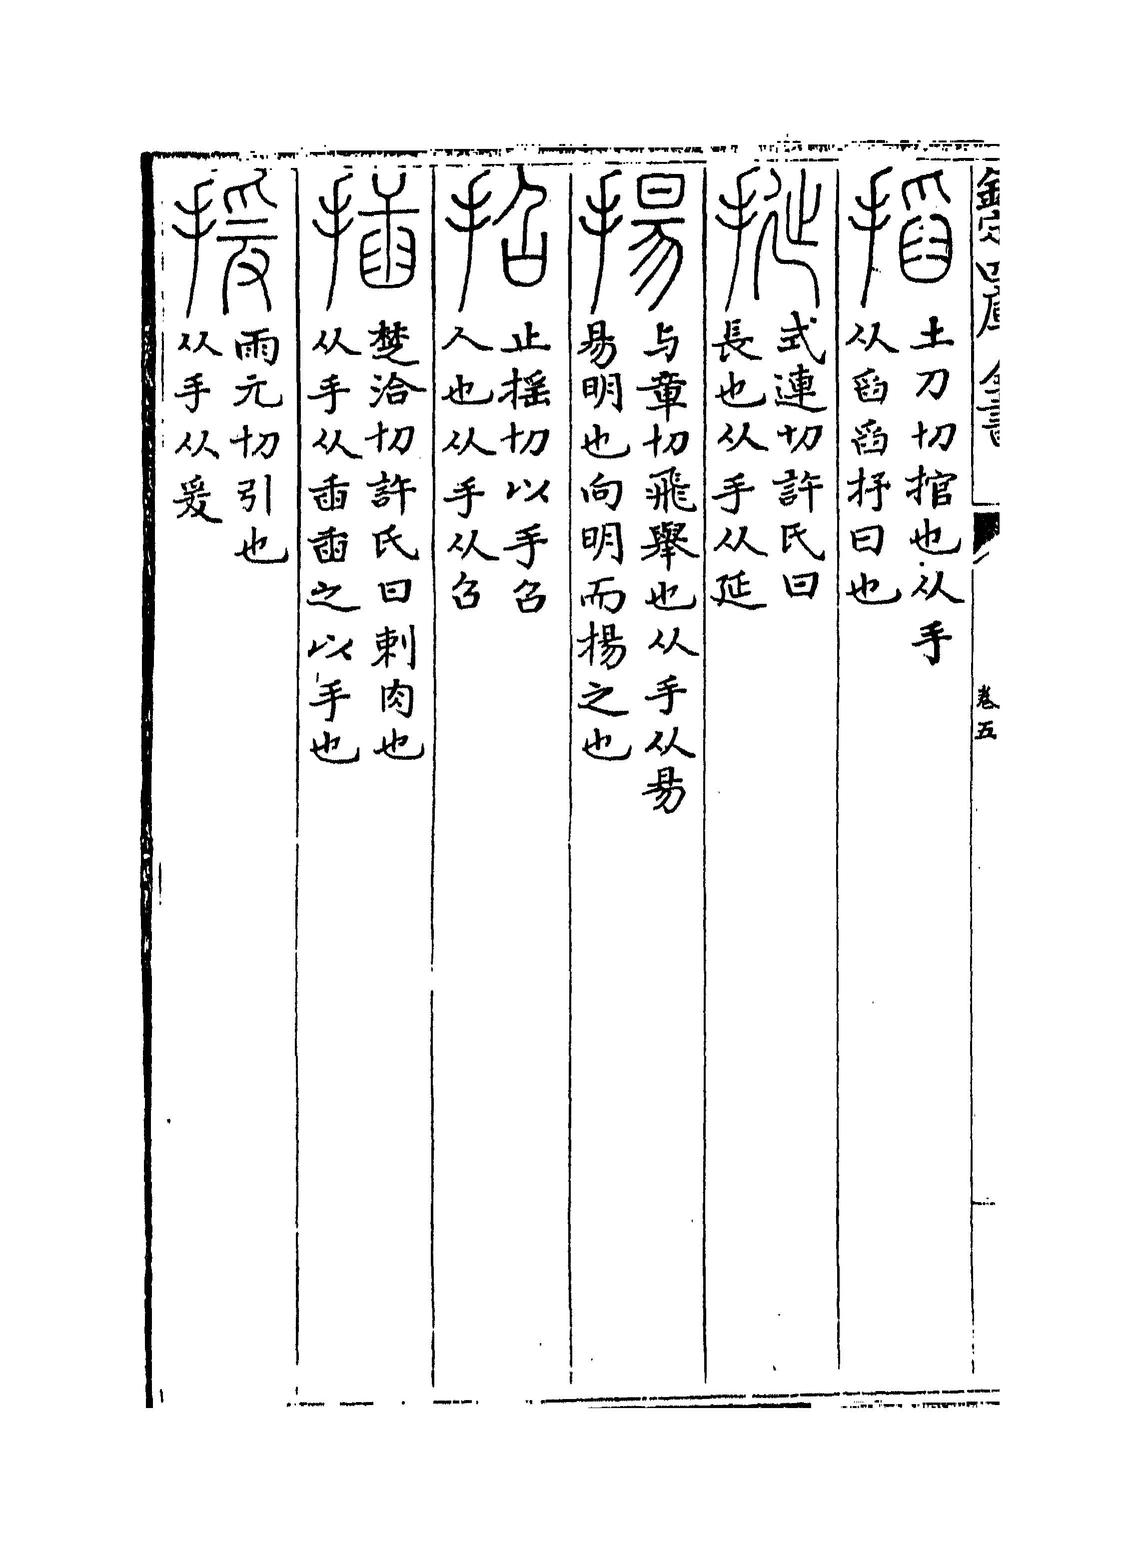 欽定四庫全書
卷五
搯
土刀切捾也从手
从舀舀抒曰也
挻
式連切許氏曰
長也从手从延
揚
与章切飛舉也从手从昜
昜明也向明而揚之也
招
止摇切以手召
人也从手从召
插
楚洽切許氏曰刺肉也
从手从臿臿之以手也
援
雨元切引也
从手从爰